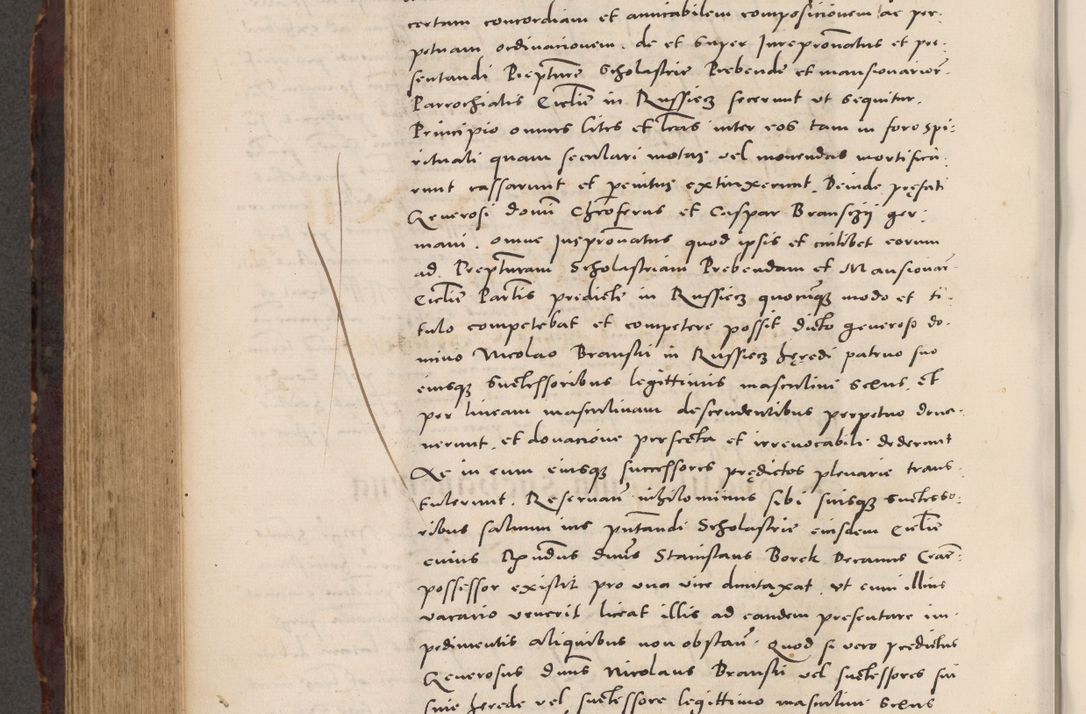 certam concordiam et amicabilem composicionem ac per-
petuam ordinacionem. de et super Jurepronatus et pre-
sentandi Prepture Scholastrie Prebende et mansionarior.
Parrochialis Ecclie in Russiecz fecerunt ut sequitur.
Principio omnes lites et lras inter eos tam in foro spi-
rituali quam seculari motas vel movendas mortifica-
runt cassarunt et penitus extinxerunt. Deinde prefati
Generosi domi Chroferus et Caspar Bransczii ger-
mani. omne Juspronatus quod ipsis et cuilibet eorum
ad Prepturam Scholastriam Prebendam et Mansionar
Ecclie Partis predicte in Russiecz quocumque modo et ti-
tulo competebat et competere possit dicto generoso do-
mino Nicolao Branski in Russiecz heredi patruo suo
eiusque successoribus legittimis masculini sexus. et
per lineam masculinam descendentibus perpetuo deve-
nerunt. et donacione perfecta et irrevocabili dederunt
Ac in eum eiusque successores predictos plenarie trans-
tulerunt. Reservan nihilominus sibi suisque successo-
ribus salvum ius pntandi Scholastrie eiusdem Ecclie
cuius Rndus dnus Stanislaus Borek Decanus Crac
possessor existit pro una vice duntaxat. ut cum illius
vacacio venerit liceat illis ad eandem presentare im-
pedimentis aliquibus non obstan. Quod si vero predictus
Generosus dnus Nicolaus Branski vel successores sui
sine herede vel successore legittimo masculini sexus